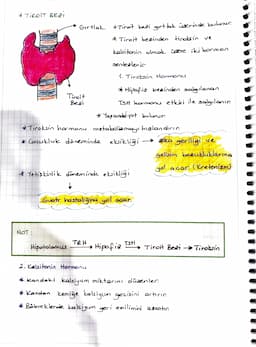 * TİROİT BEZİ
Gırtlak
Tiroit
Bezi
* Tiroit bezi gırtlak üzerinde bulunur.
* Tiroit bezinden tiroksin ve
kalsitonin olmak üzere iki hormon
sentezlenir.
1. Tiroksin Hormonu
* Hipofiz bezinden salgılanan
TSH hormonu etkisi ile salgılanır.
* Yapısında iyot bulunur
* Tiroksin hormonu metabolizmayı hızlandırır.
* Çocukluk döneminde eksikliği → zeka geriliği ve
gelişim bozukluklarına
yol açar (Kretenizm)
* Yetişkinlik döneminde eksikliği
Guatr hastalığına yol açar
NOT:
Hipotalamus TRH → Hipofiz TSH → Tiroit Bezi → Tiroksin
2. Kalsitonin Hormonu
* Kandaki kalsiyum miktarını düzenler
* Kandan kemiğe kalsiyum geçişini artırır
* Böbreklerde kalsiyum geri emilimini azaltır